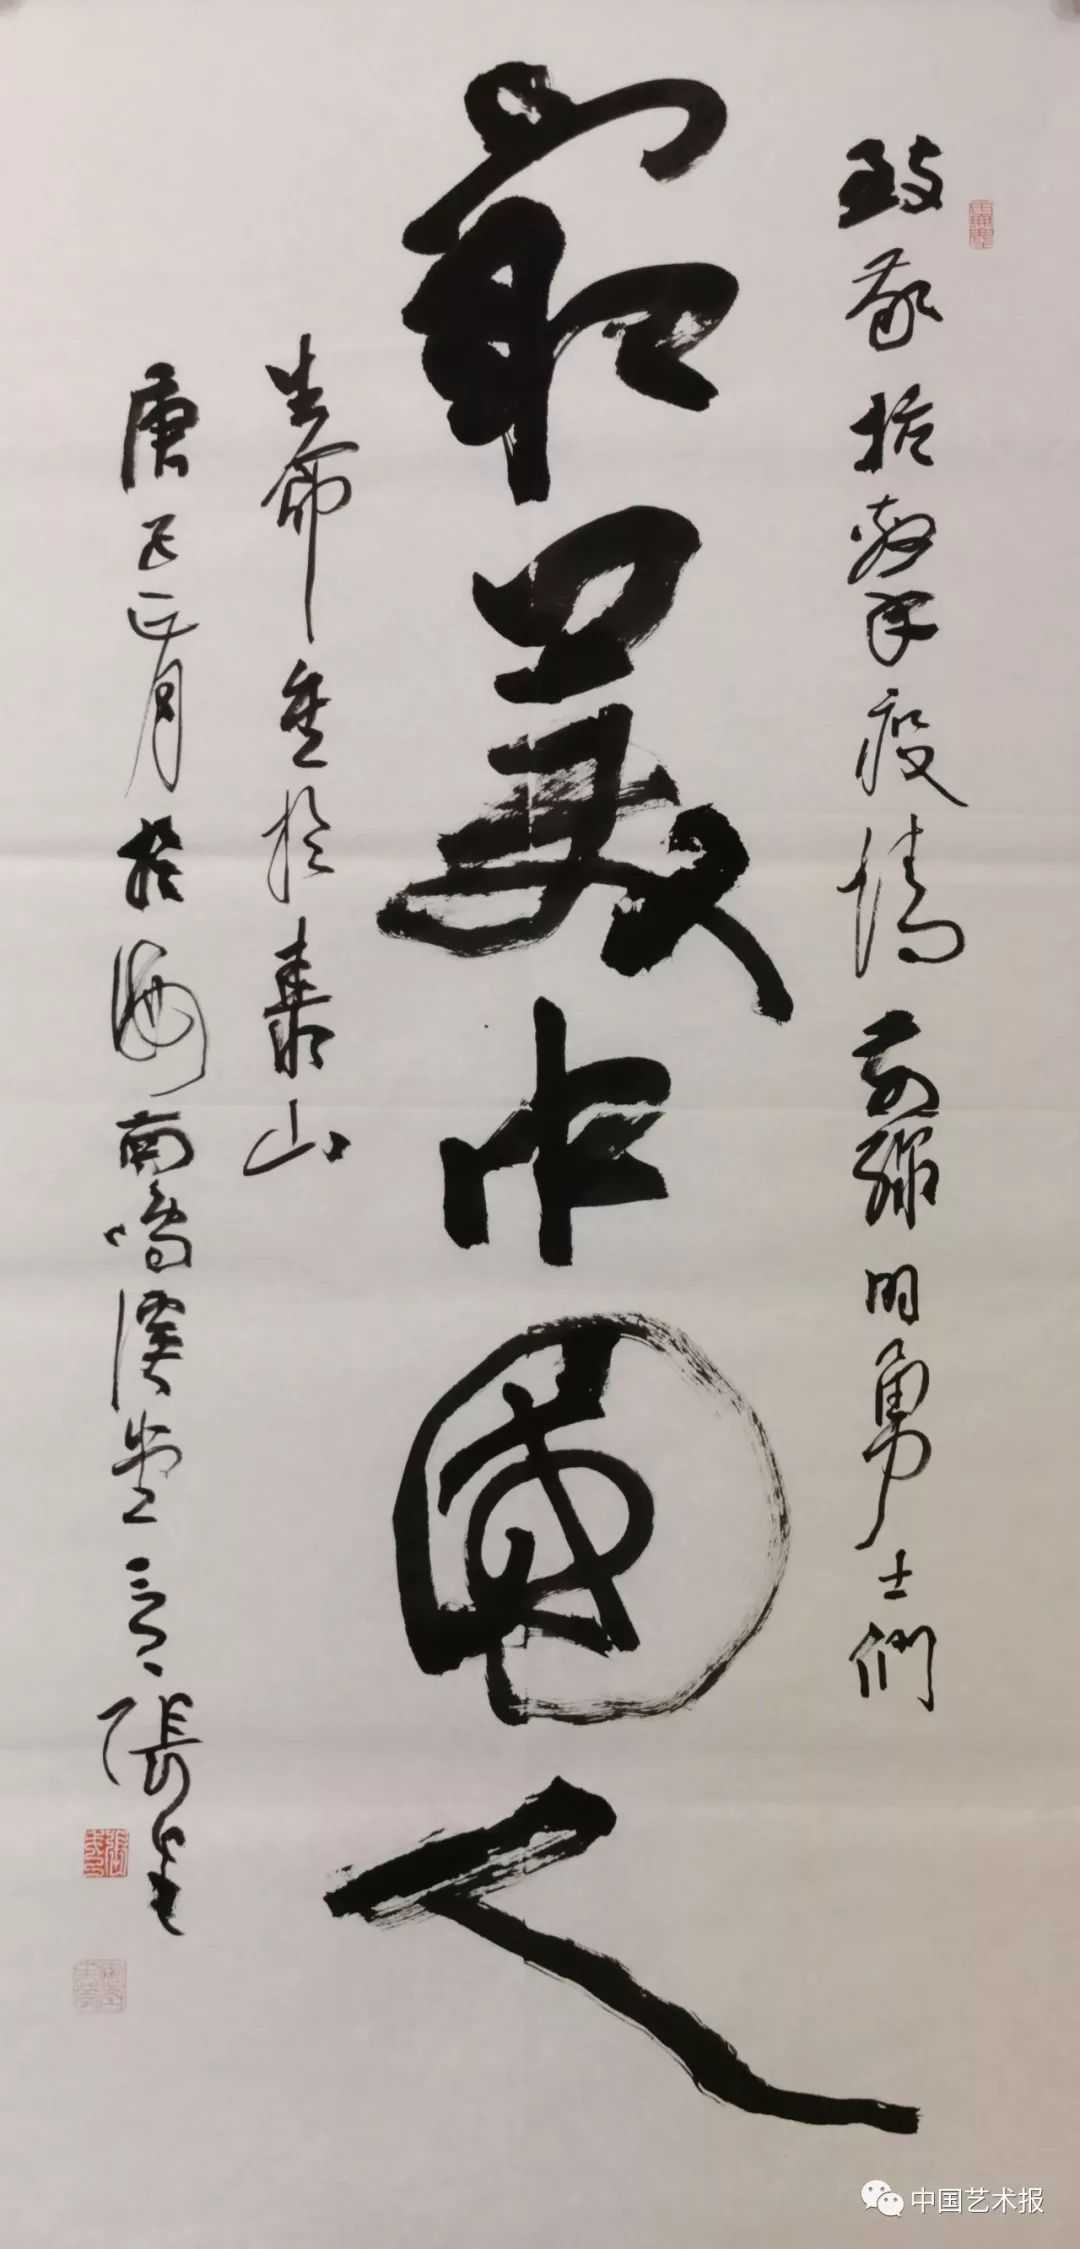 致敬抗擊疫情前線的勇士們
最美中國人
生命重於泰山
庚子正月於海南鳴溪堂 張
中国艺术报